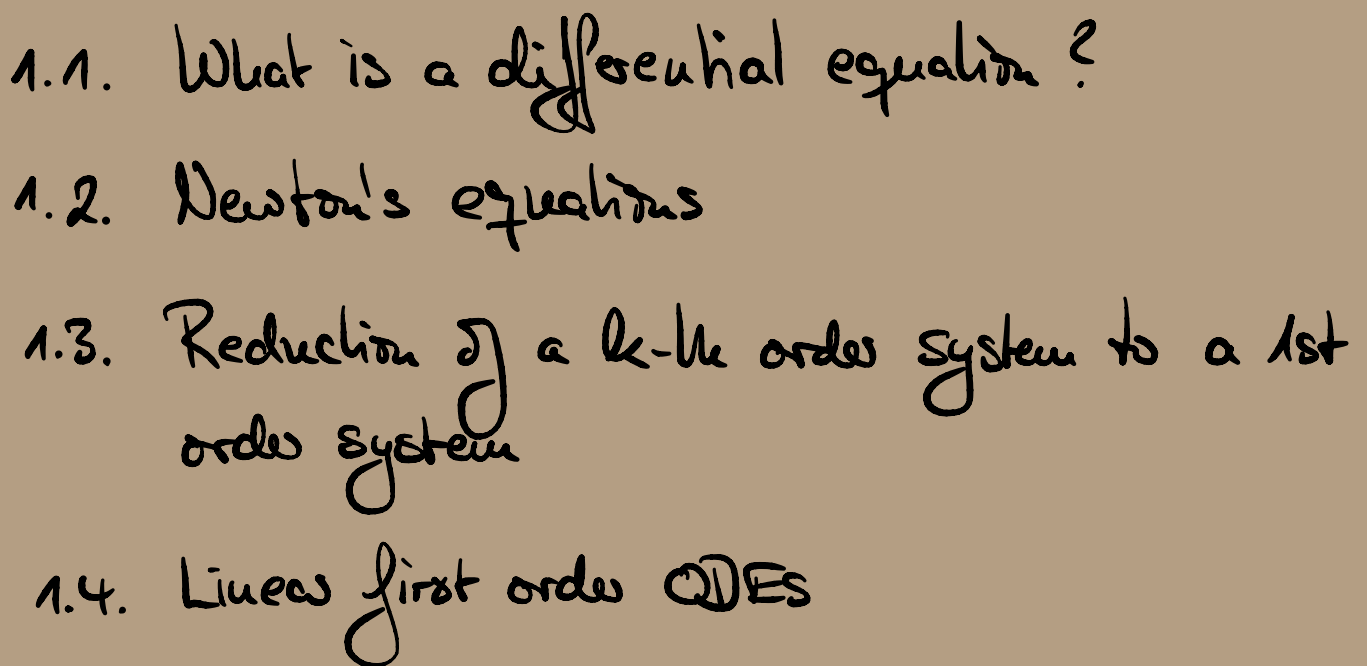 1.1. What is a differential equation?
1.2. Newton's equations
1.3. Reduction of a k-th order system to a 1st
order system
1.4. Linear first order ODEs